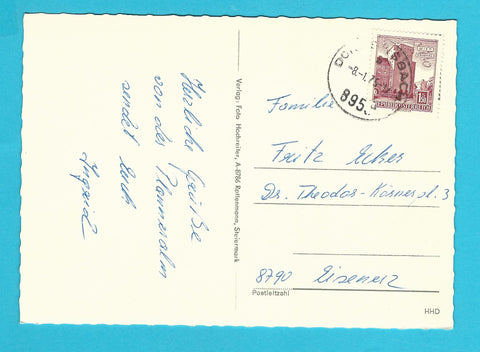 Herzliche Grüße
von der Planneralm
sendet Euch
Ingrid
Verlag: Foto Hochreiter, A-8786 Rottenmann, Steiermark
8953
REPUBLIK ÖSTERREICH
Familie
Fritz Ecker
Dr. Theodor-Körnerstr. 3
8790 Eisenerz
Postleitzahl
HHD